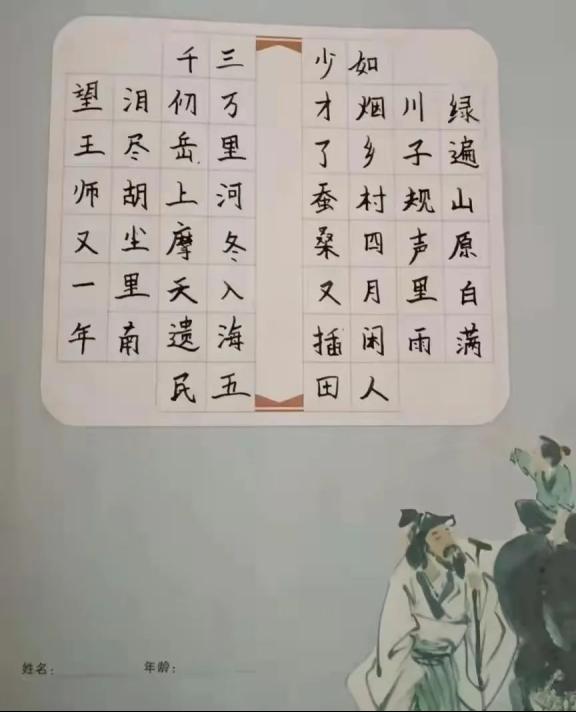 绿遍山原白满
川子规声里雨
如烟乡村四月闲人
少才了蚕桑又插田
三万里河冬入海五
千仞岳上摩天遗民
泪尽胡尘里南
望王师又一年
姓名: 年龄: